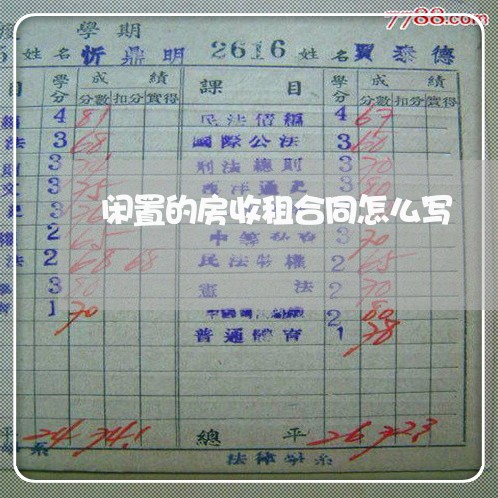 7788.com
學期
姓名 忻鼎明 2616 姓名 賈泰德
目 學分 成績 課目 學分 成績
分數 扣分 實得 分數 扣分 實得
4 81 民法債編 4 67
法 3 68 國際公法 3 60
3 刑法總則 3 70
文 3 75 西洋通史 3 80
3
閑置的房收租合同怎么写
2 65 3 70
法 2 68 68 民法物權 2 65
3 80 憲法 2 70
1 70 2 80
普通體育 1 78
平 24 74.1 總平 26 72.3
系 法律學系